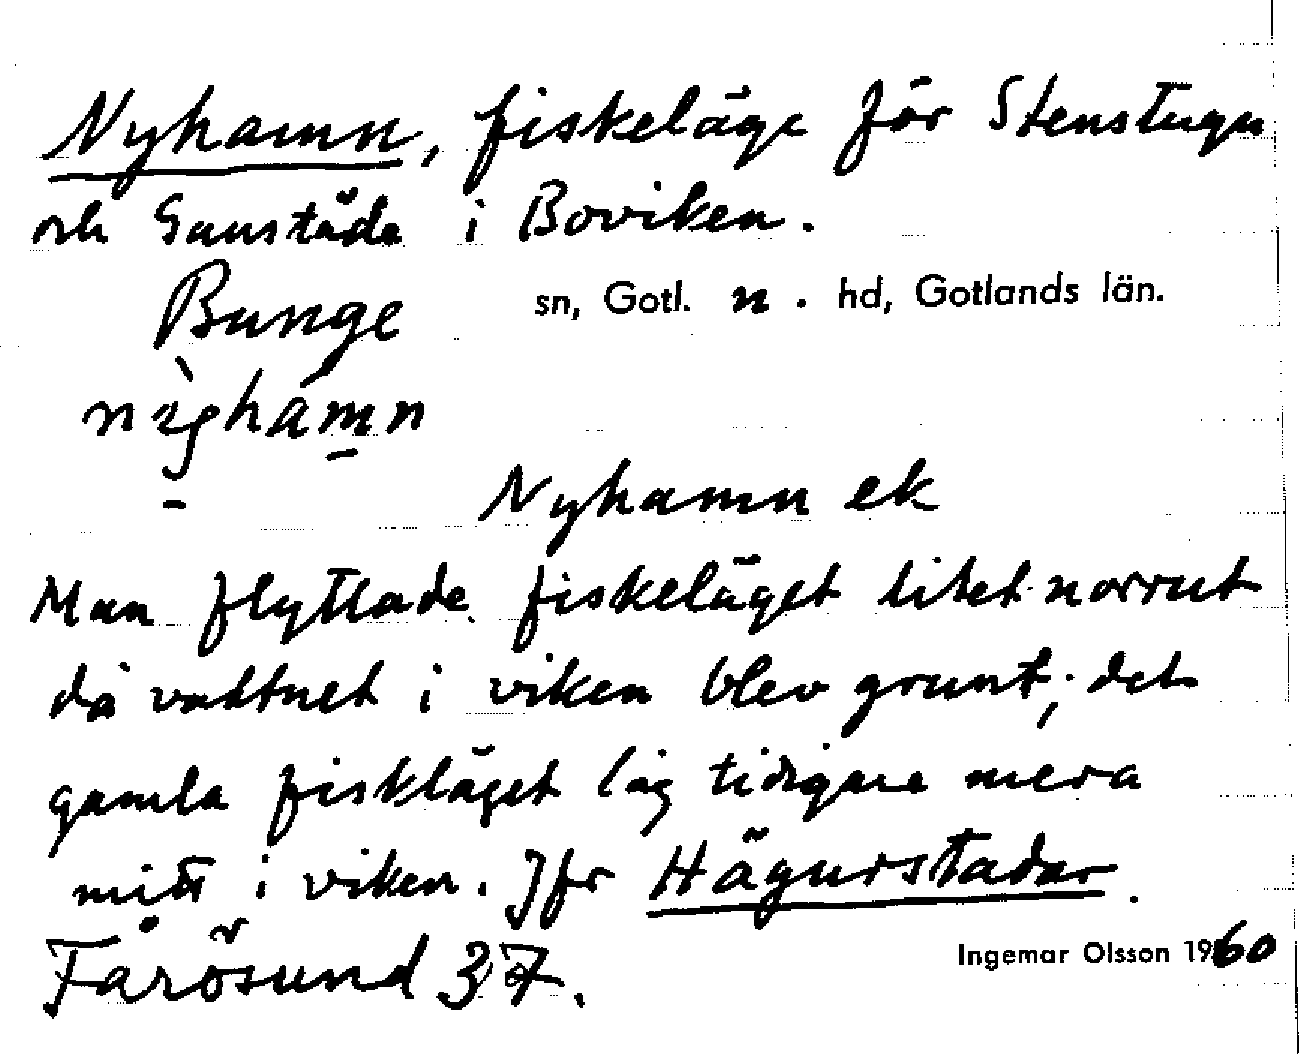 Nyhamn, fiskeläge för Stenstugu
och Gunstäde i Boviken.
Bunge sn, Gotl. n. hd, Gotlands län.
nyhamn
Nyhamn ek
Man flyttade fiskeläget litet norrut
då vattnet i viken blev grunt; det
gamla fiskläget låg tidigare mera
mitt i viken. Jfr Hägurstadar.
Fårösund 37.
Ingemar Olsson 1960